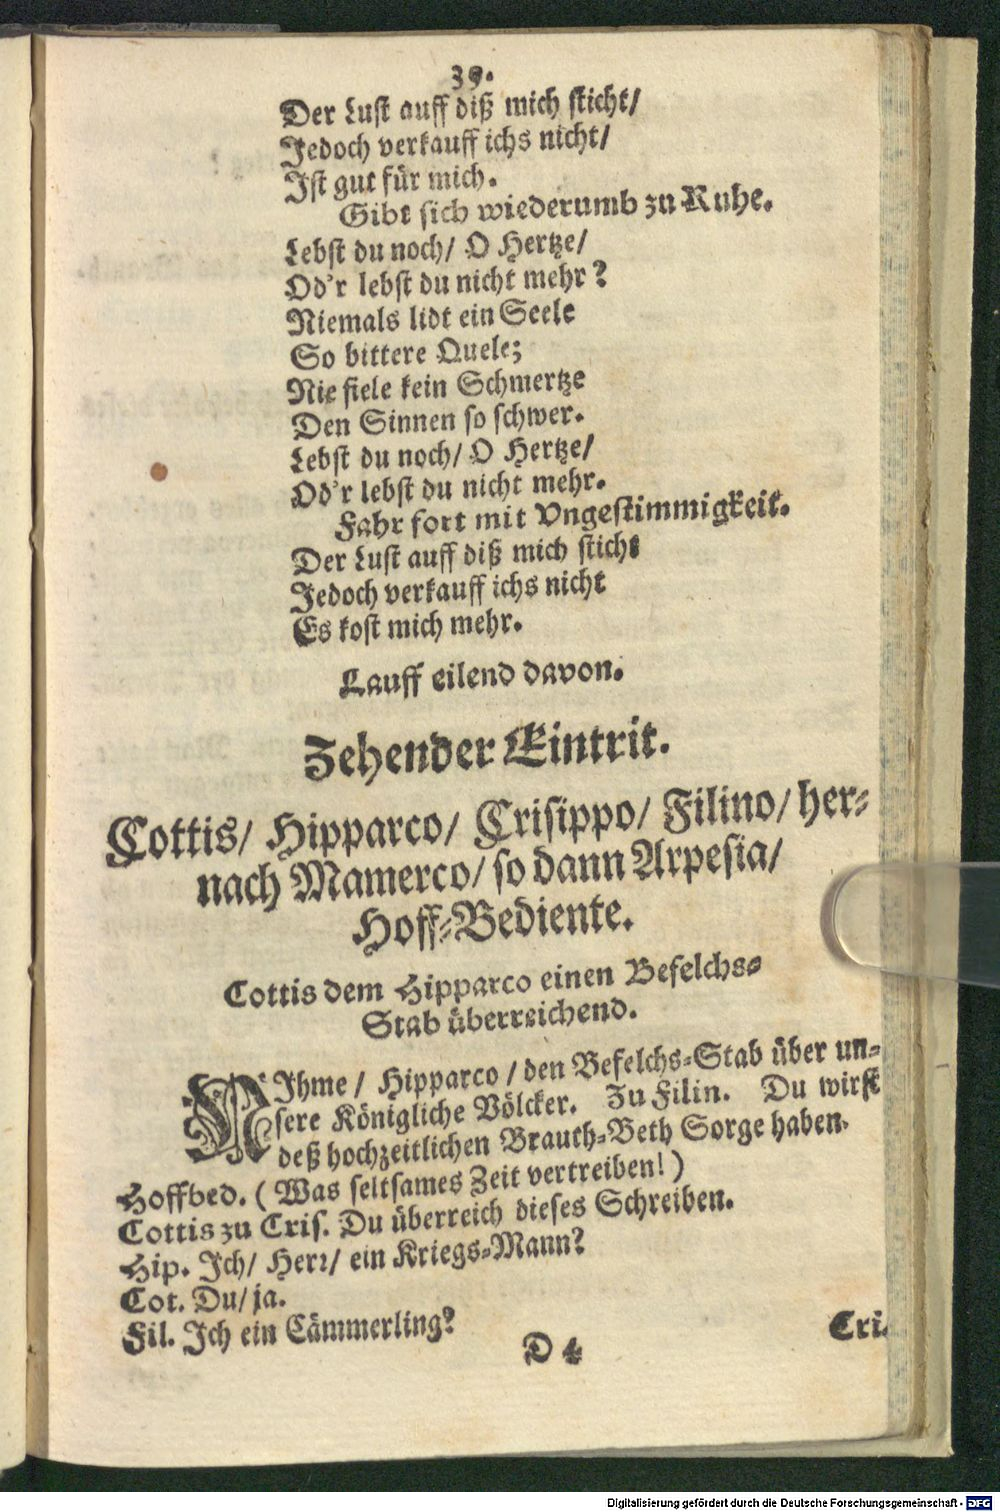 39.
Der Lust auff diß mich sticht/
Jedoch verkauff ichs nicht/
Ist gut für mich.
Gibt sich wiederumb zu Ruhe.
Lebst du noch/ O Hertze/
Od'r lebst du nicht mehr?
Niemals lidt ein Seele
So bittere Quele;
Nie fiele kein Schmertze
Den Sinnen so schwer.
Lebst du noch/ O Hertze/
Od'r lebst du nicht mehr.
Fahr fort mit Vngestimmigkeit.
Der Lust auff diß mich sticht
Jedoch verkauff ichs nicht
Es kost mich mehr.
Lauff eilend davon.
Zehender Eintrit.
Cottis/ Hipparco/ Crisippo/ Filino/ her-
nach Mamerco/ so dann Arpesia/
Hoff-Bediente.
Cottis dem Hipparco einen Befelchs-
Stab überreichend.
NIhme/ Hipparco/ den Befelchs-Stab über un-
sere Königliche Völcker. Zu Filin. Du wirst
deß hochzeitlichen Brauth-Beth Sorge haben.
Hoffbed. (Was seltsames Zeit vertreiben!)
Cottis zu Cris. Du überreich dieses Schreiben.
Hip. Ich/ Herr/ ein Kriegs-Mann?
Cot. Du/ ja.
Fil. Ich ein Cämmerling?
D 4
Cri.
Digitalisierung gefördert durch die Deutsche Forschungsgemeinschaft - DFG